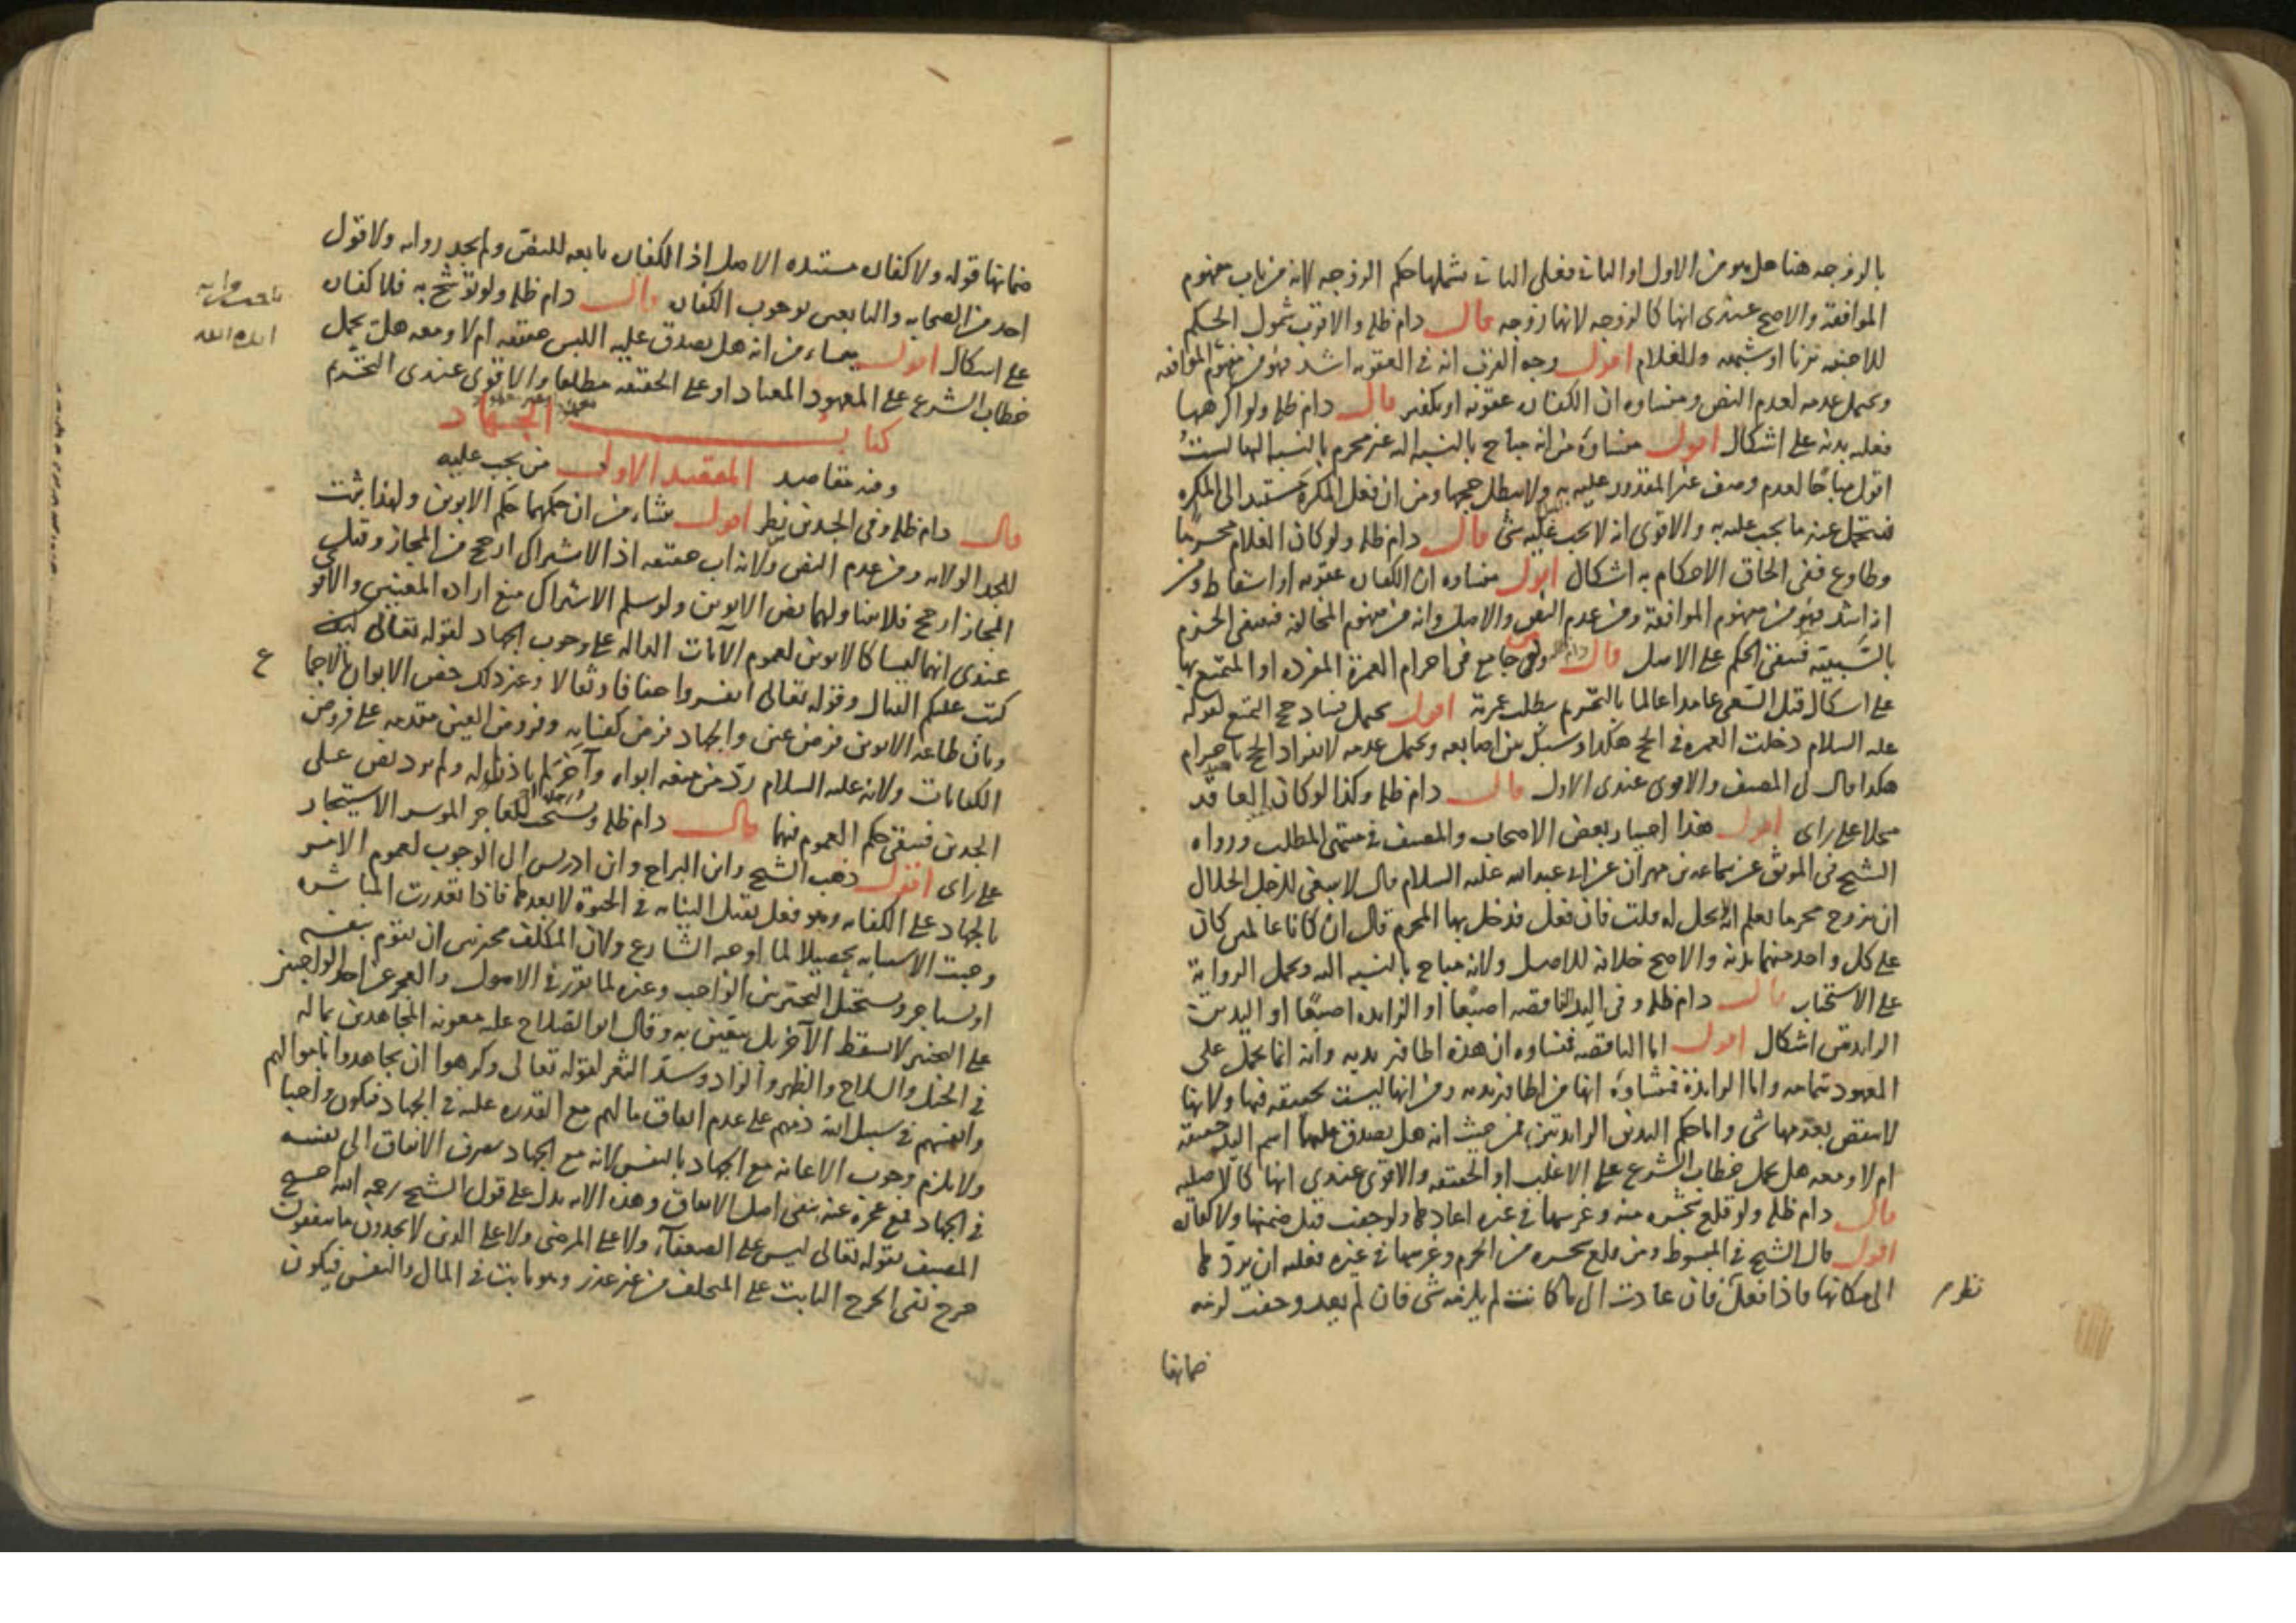 بالزوجه هنا هل هو من الاول او الثاني فعلى الثاني يشملها حكم الزوجه لانه من باب مفهوم
الموافقة والاصح عندى انها كالزوجه لانها زوجه قال دام ظله والاقرب شمول الحكم
للاجنبيه بزنا او شبهه وللغلام اقول وجه القرب انه فى العقوبه اشد فهو من مفهوم الموافقه
ويحتمل عدمه لعدم النص ومنشاوه ان الكفاره عقوبه او تكفير قال دام ظله ولو اكرهها
فعليه بدنه على اشكال اقول منشاوه من انه مباح بالنسبه اليه غير محرم بالنسبه اليها ليست
اقول مباحا لعدم وصف غير المقدور عليه به ولا يبطل حجها ومن ان فعل المكره مستند الى المكره
فيتحمل عنه ما يجب عليه به والاقوى انه لا يجب عليه شى قال دام ظله ولو كان الغلام محرما
وطاوع ففى الحاق الاحكام به اشكال اقول منشاوه ان الكفاره عقوبه او اسقاط
اذ اشد فهو من مفهوم الموافقة ومن عدم النص والاصل وانه من مفهوم المخالفه فينتفى
فيبقى الحكم على الاصل قال ولو جامع فى احرام العمرة المفرده او المتمتع بها
على اشكال قبل السعى عامدا عالما بالتحريم بطلت عمرته اقول يحتمل فساد حج التمتع لقوله
عليه السلام دخلت العمره فى الحج هكذا وشبك بين اصابعه ويحتمل عدمه لانفراد الحج باحرام
هكذا قال لى المصنف والاقوى عندى الاول قال دام ظله وكذا لو كان العاقد
محلا على راى اقول هذا اختيار بعض الاصحاب والمصنف فى منتهى المطلب ورواه
الشيخ فى الموثق عن سماعه بن مهران عن ابى عبدالله عليه السلام قال لا ينبغى للرجل الحلال
ان يزوج محرما يعلم انه لا يحل له قلت فان فعل فدخل بها المحرم قال ان كانا عالمين كان
على كل واحد منهما بدنه والاصح خلافه للاصل ولانه مباح بالنسبه اليه ويحمل الرواية
على الاستحباب قال دام ظله وفى اليد الناقصه اصبعا او الزايده اصبعا او اليدين
الزايدتين اشكال اقول اما الناقصه فمنشاوه ان هذه اظافير يديه وانه انما يحمل على
المعهود تمامه واما الزايدة فمنشاوه انها من اظافير يديه ومن انها ليست بحقيقه فيها ولانها
لا ينقص بعدمها شى واما حكم اليدين الزايدتين فمن حيث انه هل يصدق عليهما اسم اليد حقيقه
ام لا ومعه هل يحمل خطاب الشرع على الاغلب او الحقيقه والاقوى عندى انها كالاصليه
قال دام ظله ولو قلع شجره منه وغرسها فى غيره اعادها ولو جفت قيل ضمنها ولا كفاره
اقول قال الشيخ فى المبسوط ومن قلع شجره من الحرم وغرسها فى غيره فعليه ان يردها
الى مكانها فاذا فعل فان عادت الى ما كانت لم يلزمه شى فان لم يعد وجفت لزمه
ضمانها
ضمانها قوله ولا كفاره مستنده الاصل اذ الكفاره تابعه للنص ولم نجد روايه ولا قول
احد من الصحابه والتابعين بوجوب الكفاره قال دام ظله ولو توشح به فلا كفاره
على اشكال اقول ينشاء من انه هل يصدق عليه اللبس حقيقه ام لا ومعه هل يحمل
خطاب الشرع على المعهود المعتاد او على الحقيقه مطلقا والاقوى عندى التحريم
كتاب الجهاد
وفيه مقاصد المقصد الاول من يجب عليه
قال دام ظله وفى الجدين نظر اقول ينشاء من ان حكمهما حكم الابوين ولهذا يثبت
للجد الولايه ومن عدم النص ولانه اب حقيقه اذ الاشتراك ارجح من المجاز وقيل
المجاز ارجح فلا يتناولهما نص الابوين ولو سلم الاشتراك منع اراده المعنيين والاقوى
عندى انهما ليسا كالابوين لعموم الآيات الداله على وجوب الجهاد لقوله تعالى
كتب عليكم القتال وقوله تعالى انفروا خفافا وثقالا وغير ذلك خص الابوان بالاجماع
وبان طاعه الابوين فرض عين والجهاد فرض كفايه وفروض العين مقدمه على فروض
الكفايات ولانه عليه السلام رد من منعه ابواه وآخر لم ياذنا له ولم يرد نص على
الجدين فيبقى حكم العموم فيهما قال دام ظله ويستحب للعاجز الموسر الاستيجار
على راى اقول ذهب الشيخ وابن البراج وابن ادريس الى الوجوب لعموم الامر
بالجهاد على الكفايه وهو فعل يقبل النيابه فى الحيوة لا بعدها فاذا تعذرت المباشره
وجبت الاستنابه تحصيلا لما اوجبه الشارع ولان المكلف مخير بين ان يقوم بنفسه
او يستاجر ويستحيل التخيير بين الواجب وغيره لما تقرر فى الاصول والعجز عن احد الواجبين
على التخيير لا يسقط الآخر بل يتعين به وقال ابو الصلاح عليه معونه المجاهدين بماله
فى الخيل والسلاح والظهر والزاد وسد الثغر لقوله تعالى وكرهوا ان يجاهدوا باموالهم
وانفسهم فى سبيل الله ذمهم على عدم انفاق مالهم مع القدره عليه فى الجهاد فيكون واجبا
ولا يلزم وجوب الاعانه مع الجهاد بالنفس لانه مع الجهاد يصرف الانفاق الى نفسه
فى الجهاد فمع عجزه عنه يبقى اصل الانفاق وهذه الايه يدل على قول الشيخ رحمه الله احتج
المصنف بقوله تعالى ليس على الضعفآء ولا على المرضى ولا على الذين لا يجدون ما ينفقون
حرج نفى الحرج الثابت على المتخلف من غير عذر وهو ثابت فى المال والنفس فيكون